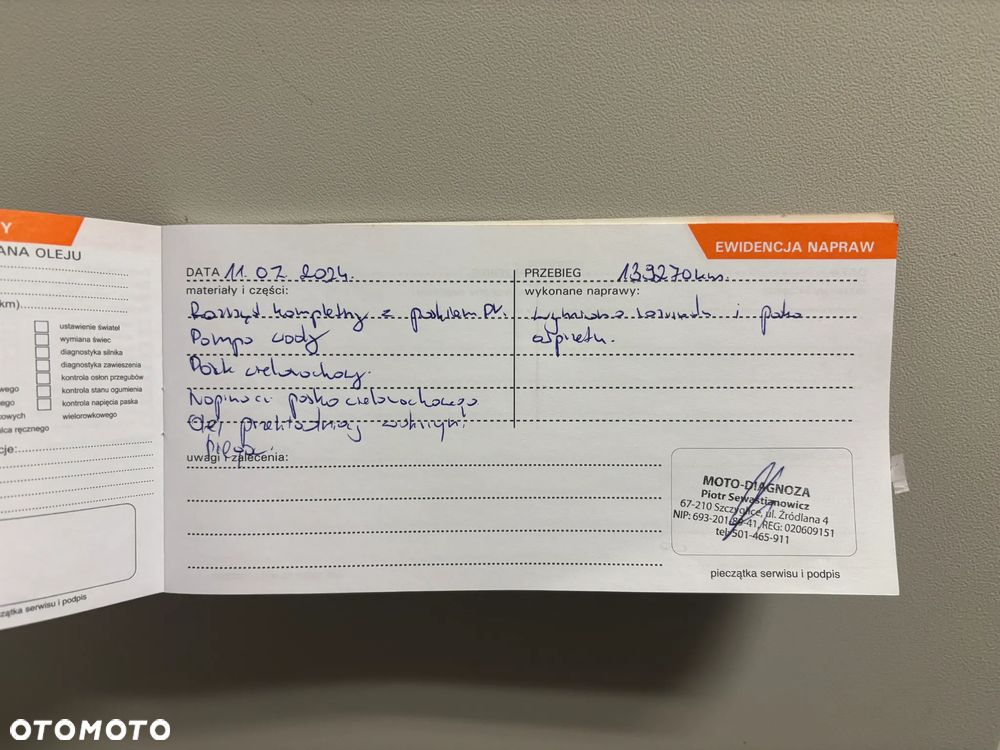 Y
ANA OLEJU
km)
ustawienie świateł
wymiana świec
diagnostyka silnika
diagnostyka zawieszenia
kontrola osłon przegubów
wego kontrola stanu ogumienia
kontrola napięcia paska
cowych wielorowkowego
lca ręcznego
cje:
czątka serwisu i podpis
EWIDENCJA NAPRAW
DATA 11.07.2024.
PRZEBIEG 139270km.
materiały i części:
wykonane naprawy:
Rozrząd kompletny z paskiem
Pompa wody
Pasek wielorowkowy.
Napinacz paska wielorowkowego
Olej przekładniowy
wymiana rozrządu i paska
osprzętu.
uwagi i zalecenia:
MOTO-DIAGNOZA
Piotr Sewastianowicz
67-210 Szczyglice, ul. Źródlana 4
NIP: 693-201- -41, REG: 020609151
tel. 501-465-911
pieczątka serwisu i podpis
OTOMOTO